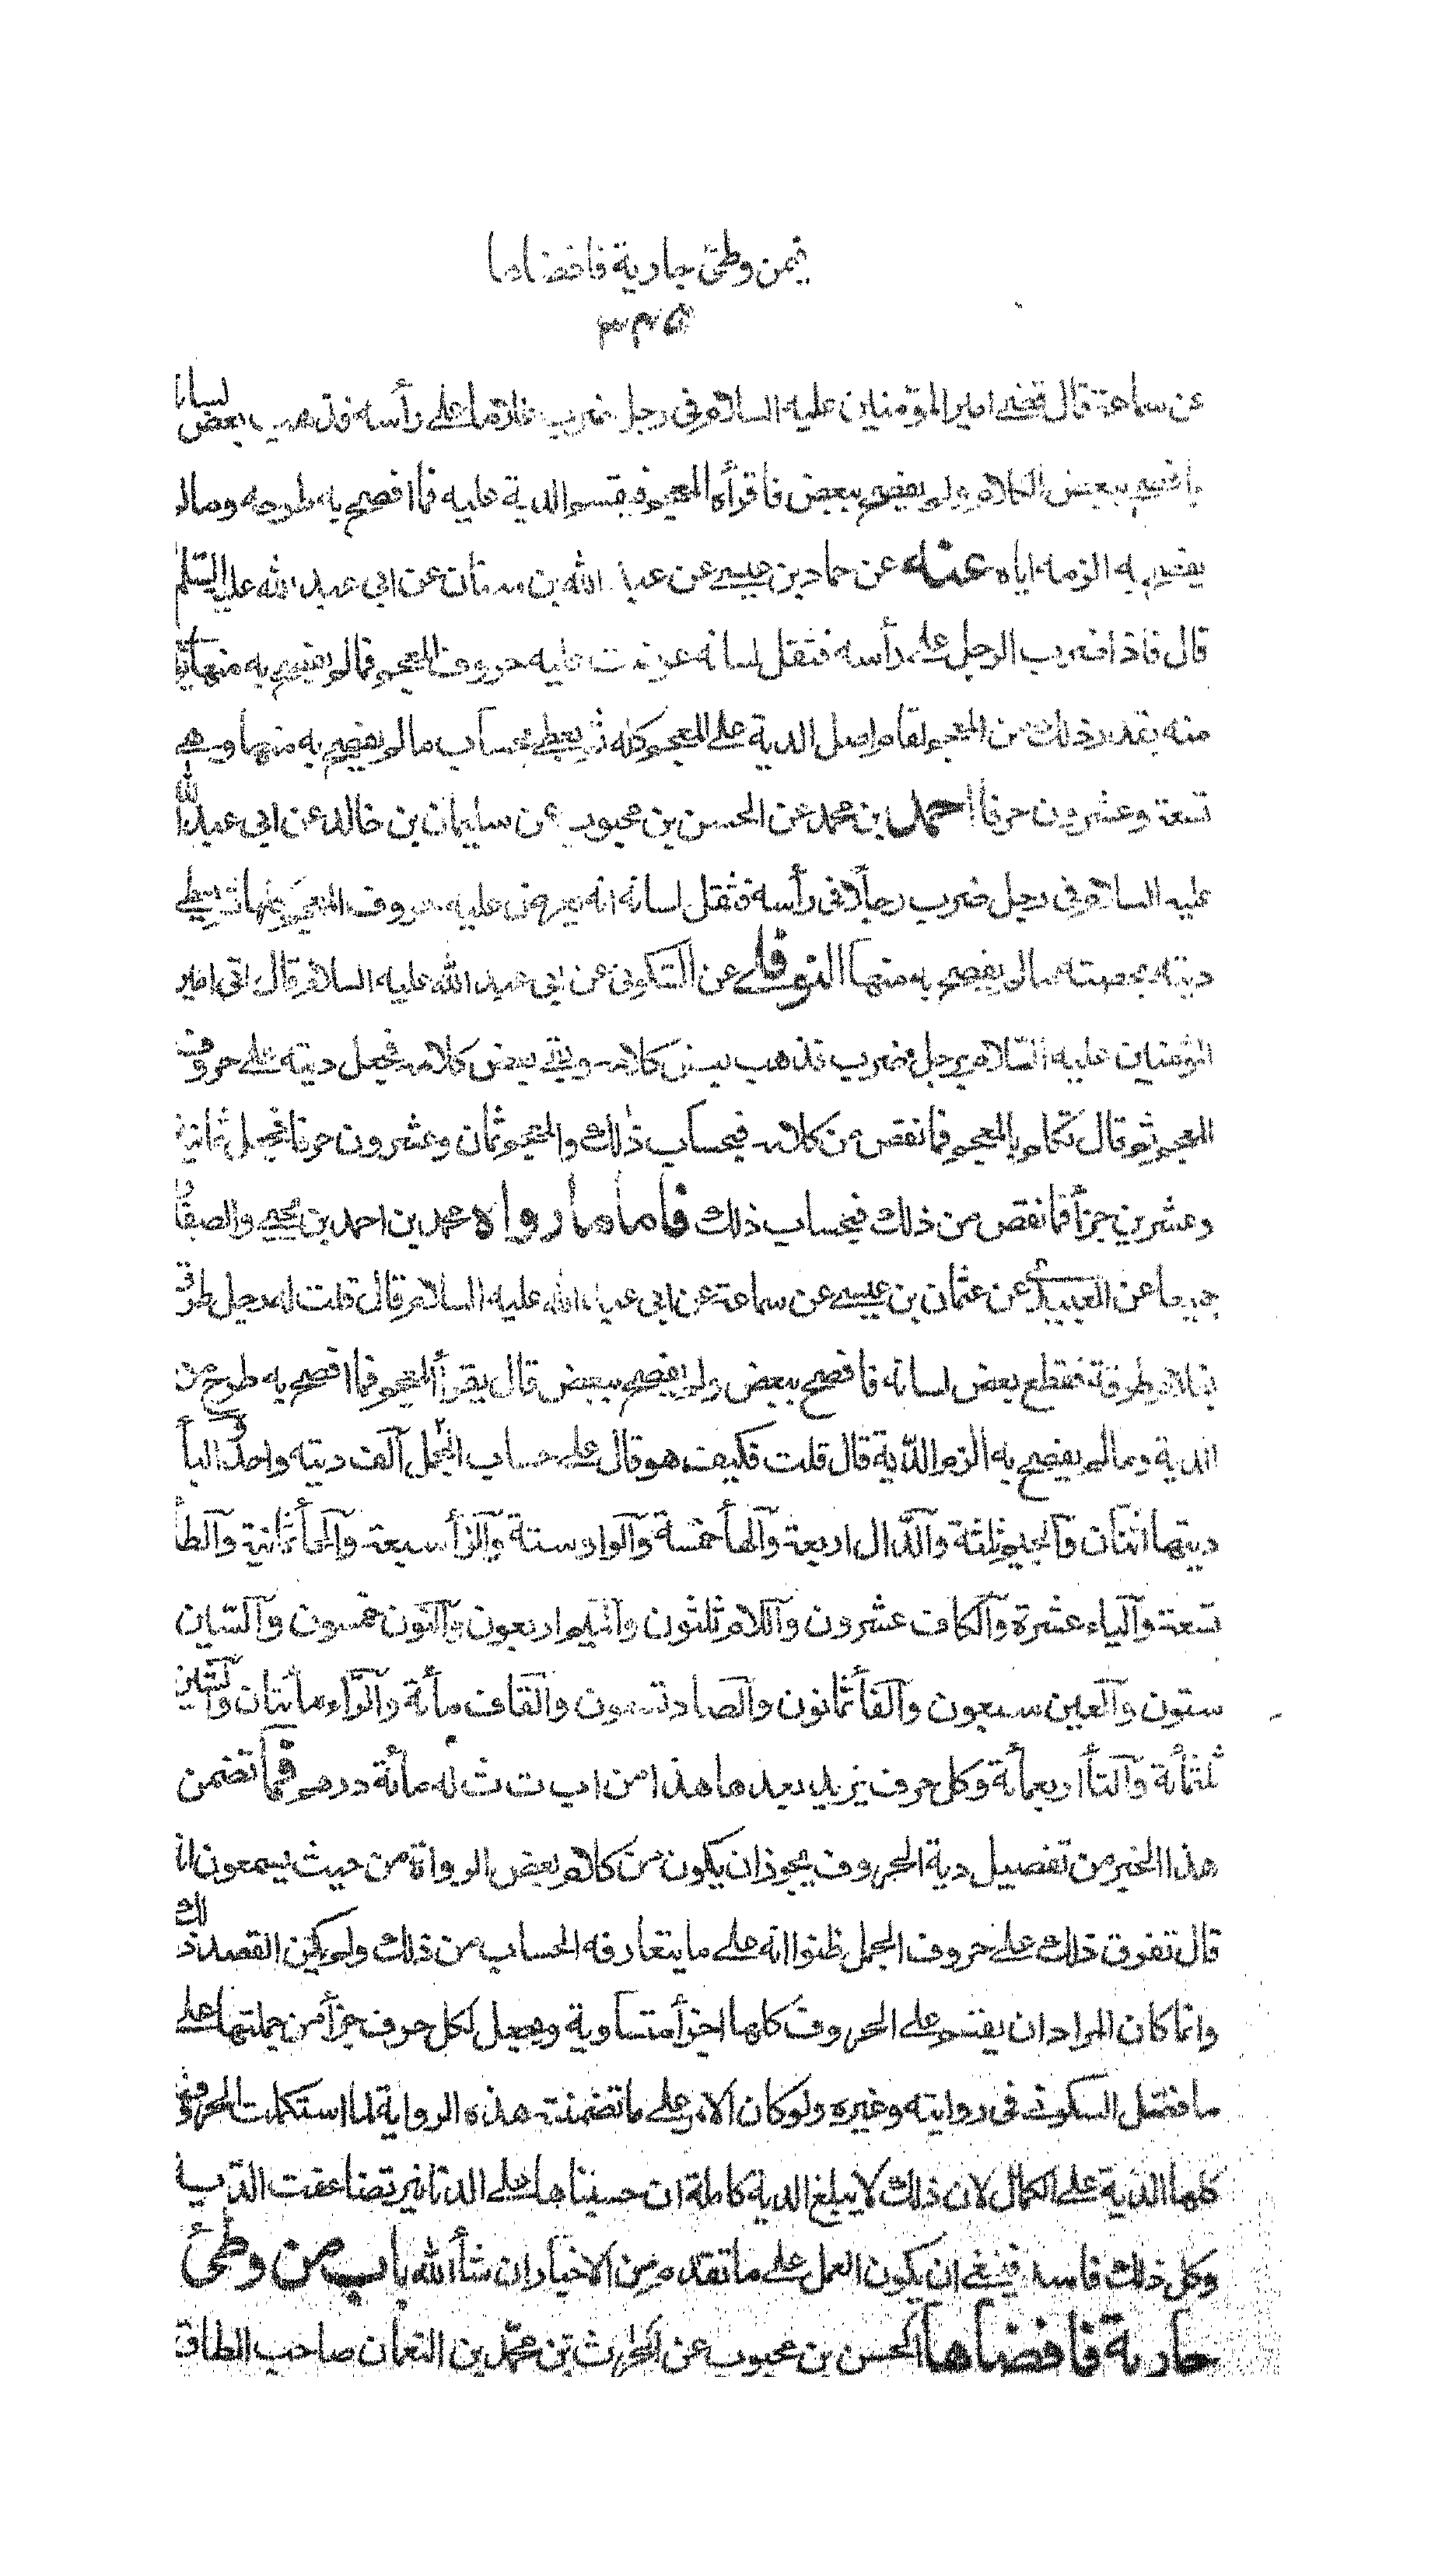 فيمن وطئ جارية فافضاها
عن سماعة قال قضى امير المؤمنين عليه السلام فى رجل ضرب غلاما على رأسه فذهب بعض لسانه
وافصح ببعض الكلام ولم يفصح ببعض فاقرأه المعجم فقسم الدية عليه فما افصح به طرحه وما لم
يفصح به الزمه اياه عنه عن حماد بن عيسى عن عبد الله بن سنان عن ابى عبد الله عليه السلم
قال فاذا ضرب الرجل على رأسه فثقل لسانه عرضت عليه حروف المعجم فما لم يفصح به منها
منه بقدر ذلك من المعجم يقام اصل الدية على المعجم كله ثم يعطى بحساب ما لم يفصح به منها وهى
تسعة وعشرون حرفا احمد بن محمد عن الحسن بن محبوب عن سليمان بن خالد عن ابى عبد الله
عليه السلام فى رجل ضرب رجلا فى رأسه فثقل لسانه انه يعرض عليه حروف المعجم كلها ثم يعطى
ديته بحصته ما لم يفصح به منها النوفلى عن السكونى عن ابى عبد الله عليه السلام قال اتى امير
المؤمنين عليه السلام برجل ضرب فذهب بعض كلامه وبقى بعض كلامه فجعل ديته على حروف
المعجم ثم قال تكلم بالمعجم فما نقص من كلامه فبحساب ذلك والمعجم ثمان وعشرون حرفا فجعل ثمانية
وعشرين جزأ فما نقص من ذلك فبحساب ذلك فاما ما رواه محمد بن احمد بن يحيى والصفار
جميعا عن العبيدى عن عثمان بن عيسى عن سماعة عن ابى عبد الله عليه السلام قال قلت له رجل طرف
بغلام طرفة فقطع بعض لسانه فافصح ببعض ولم يفصح ببعض قال يقرأ المعجم فما افصح به طرح من
الدية وما لم يفصح به الزم الدية قال قلت فكيف هو قال على حساب الجمل آلف ديته واحد والبأ
ديتها اثنان والجيم ثلثة والدال اربعة والهأ خمسة والواو ستة والزأ سبعة والحأ ثمانية والطأ
تسعة والياء عشرة والكاف عشرون واللام ثلثون والميم اربعون والنون خمسون والسين
ستون والعين سبعون والفأ ثمانون والصاد تسعون والقاف مأة والراء مائتان والشين
ثلثمأة والتأ اربعمأة وكل حرف يزيد بعد هذا من ا ب ت ث له مائة درهم فما تضمن
هذا الخبر من تفصيل دية الحروف يجوز ان يكون من كلام بعض الرواة من حيث سمعوا انه
قال تفرق ذلك على حروف الجمل ظنوا انه على ما يتعارفه الحساب من ذلك ولم يكن القصد ذلك
وانما كان المراد ان يقسم على الحروف كلها اجزأ متساوية ويجعل لكل حرف جزأ من جملتها على
ما فصل السكونى فى روايته وغيره ولو كان الامر على ما تضمنته هذه الرواية لما استكملت الحروف
كلها الدية على الكمال لان ذلك لا يبلغ الدية كاملة ان حسبناها على الدنانير تضاعفت الدية
وكل ذلك فاسد فينبغى ان يكون العمل على ما تقدم من الاخبار ان شأ الله باب من وطئ
جارية فافضاها الحسن بن محبوب عن الحارث بن محمد بن النعمان صاحب الطاق